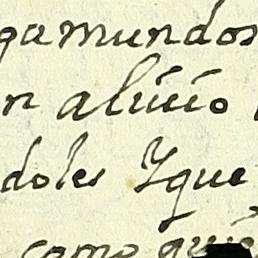 gamundos
n aliuio
doles Yque
como quie